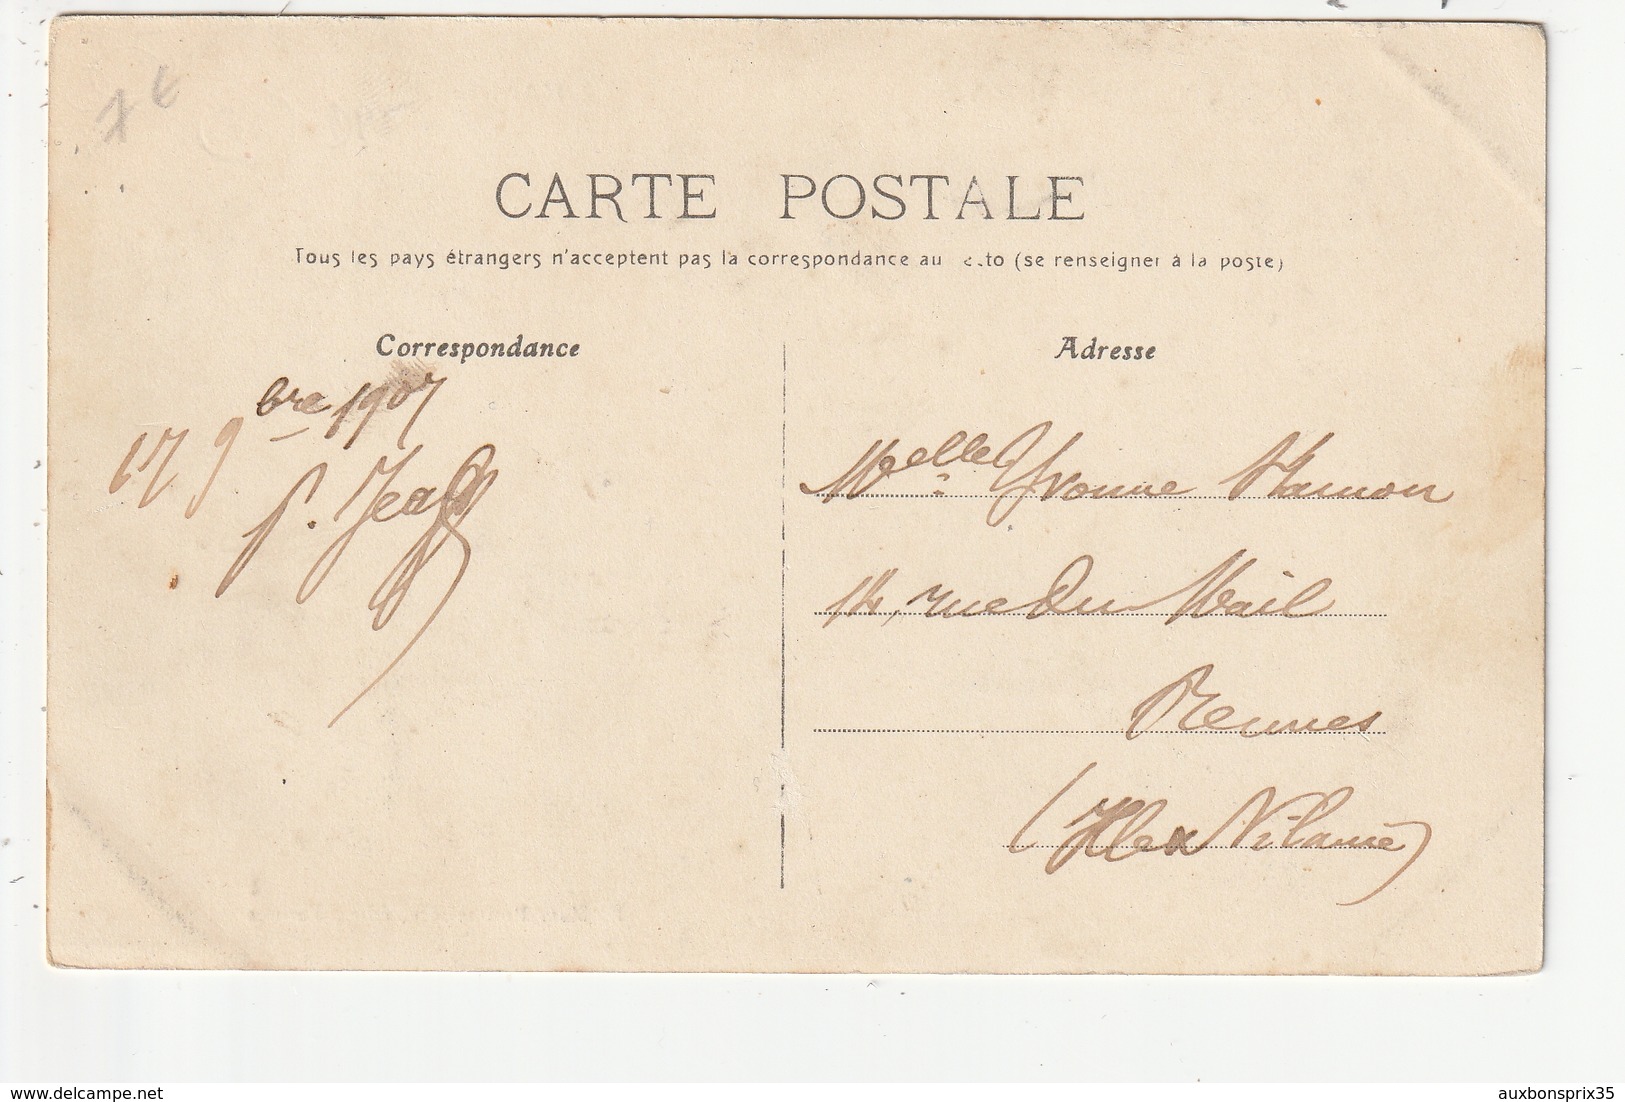 7 €
CARTE POSTALE
Tous les pays étrangers n'acceptent pas la correspondance au to (se renseigner à la poste)
Correspondance
17 9bre 1907
Adresse
Melle Yvonne Hamon
14, rue du Mail
Rennes
(Ille x Vilaine)
www.delcampe.net
auxbonsprix35